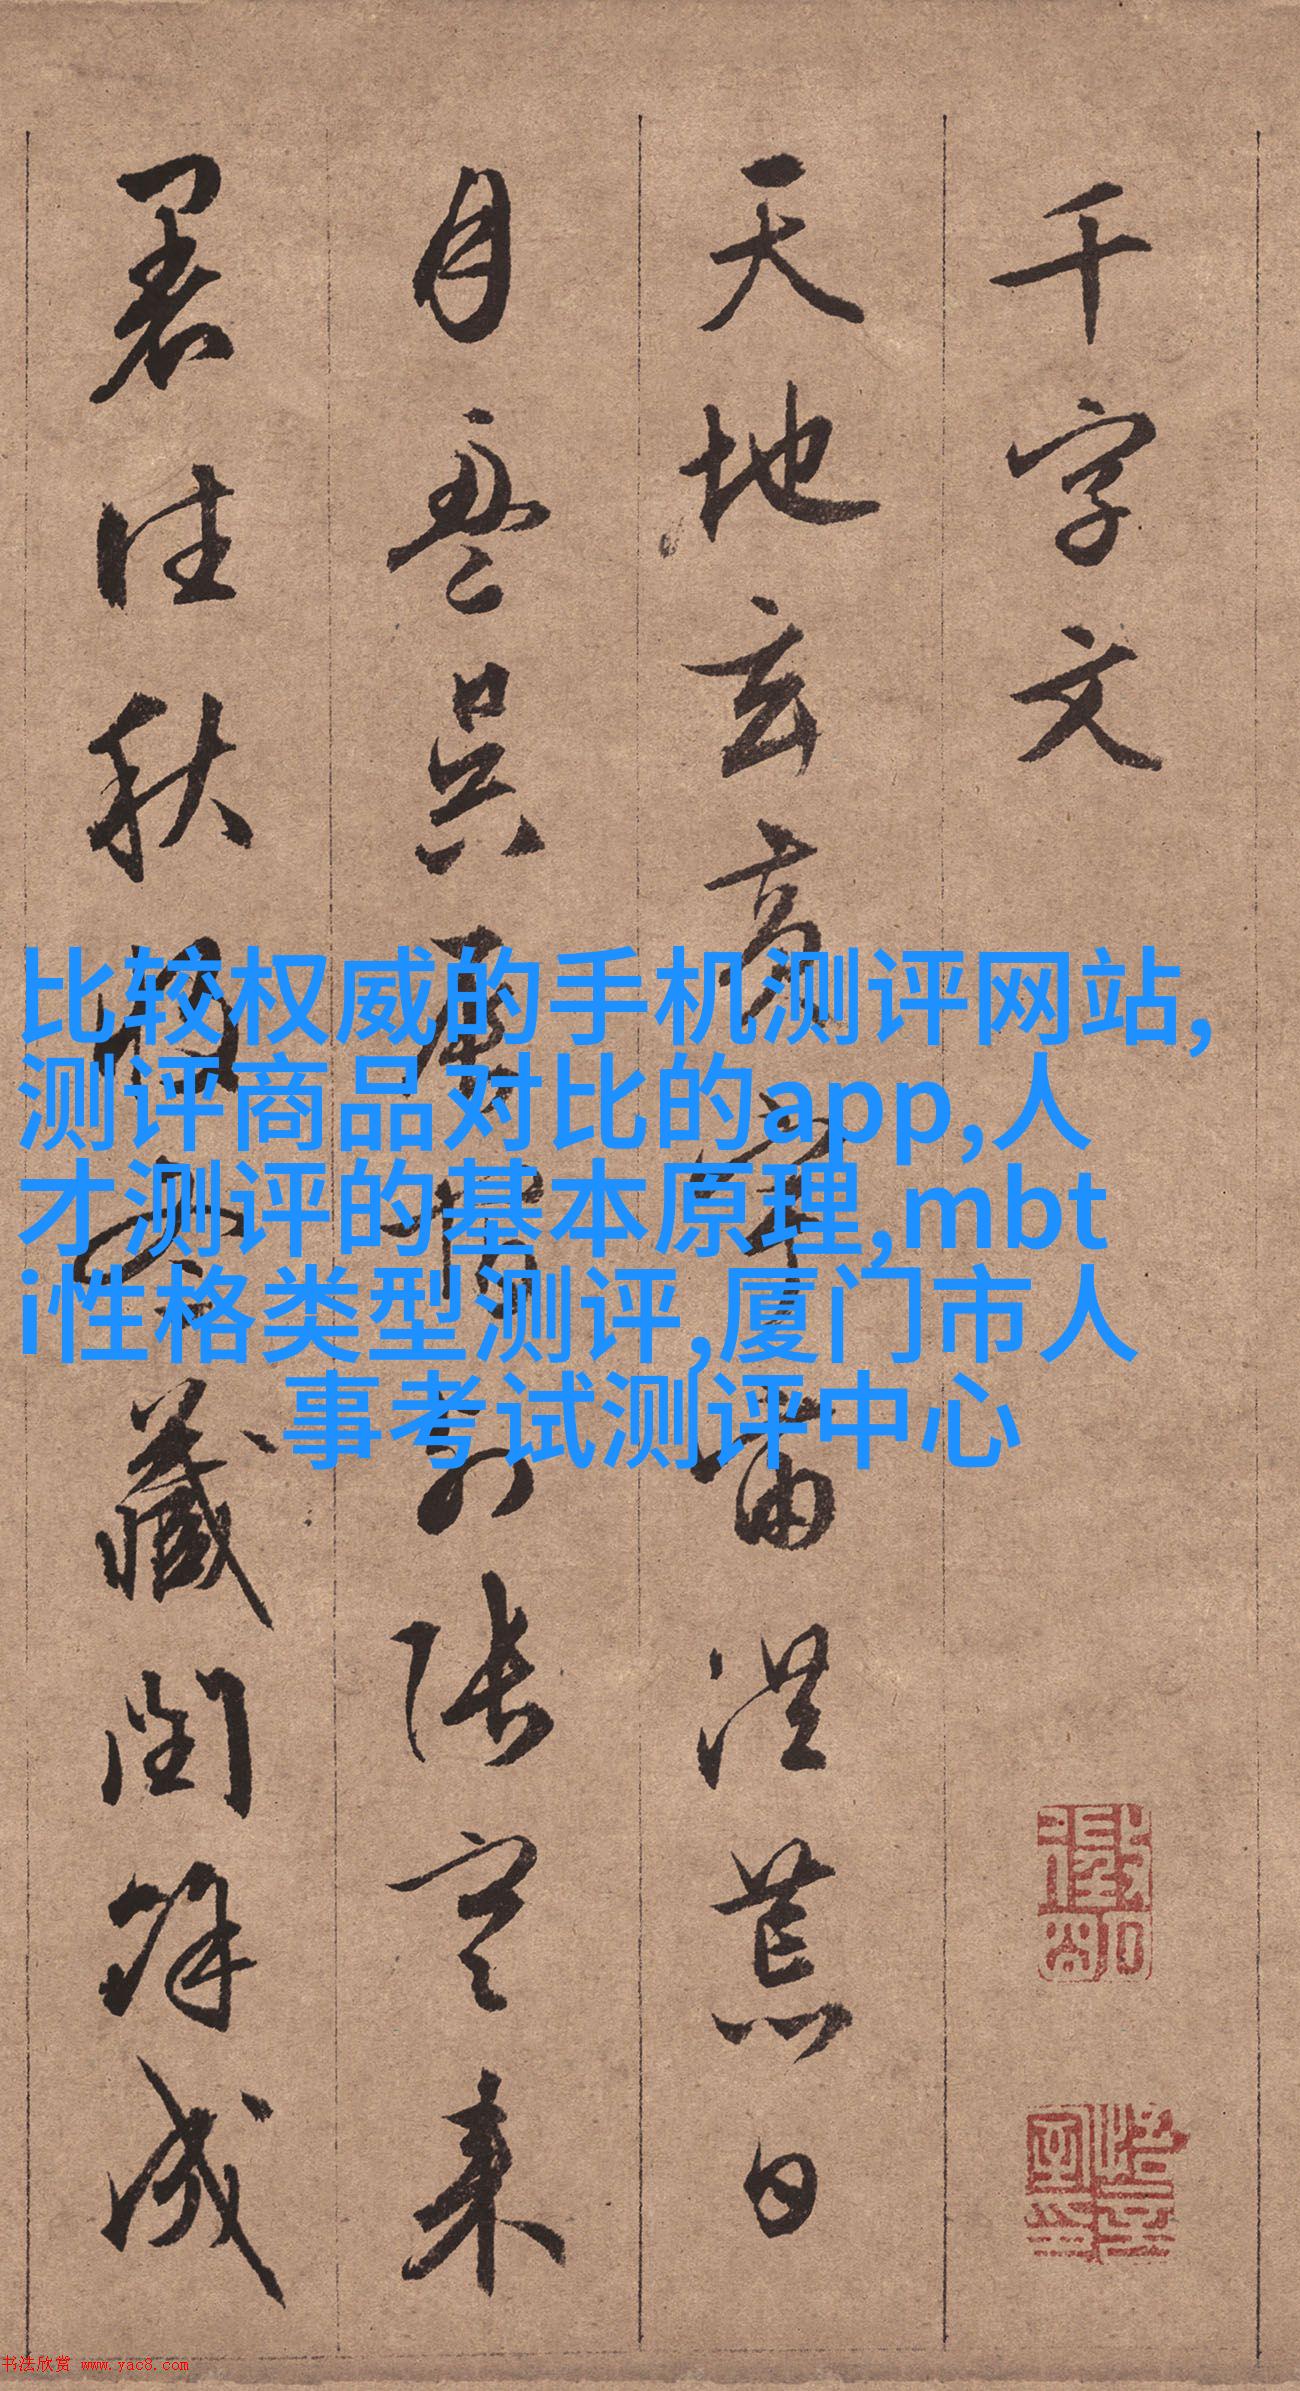 千字文
天地玄黄宇宙洪荒日
月盈昃辰宿列张寒来
暑往秋收冬藏闰余成
比较权威的手机测评网站,
测评商品对比的app,人
才测评的基本原理,mbt
i性格类型测评,厦门市人
事考试测评中心
书法欣赏 www.yac8.com